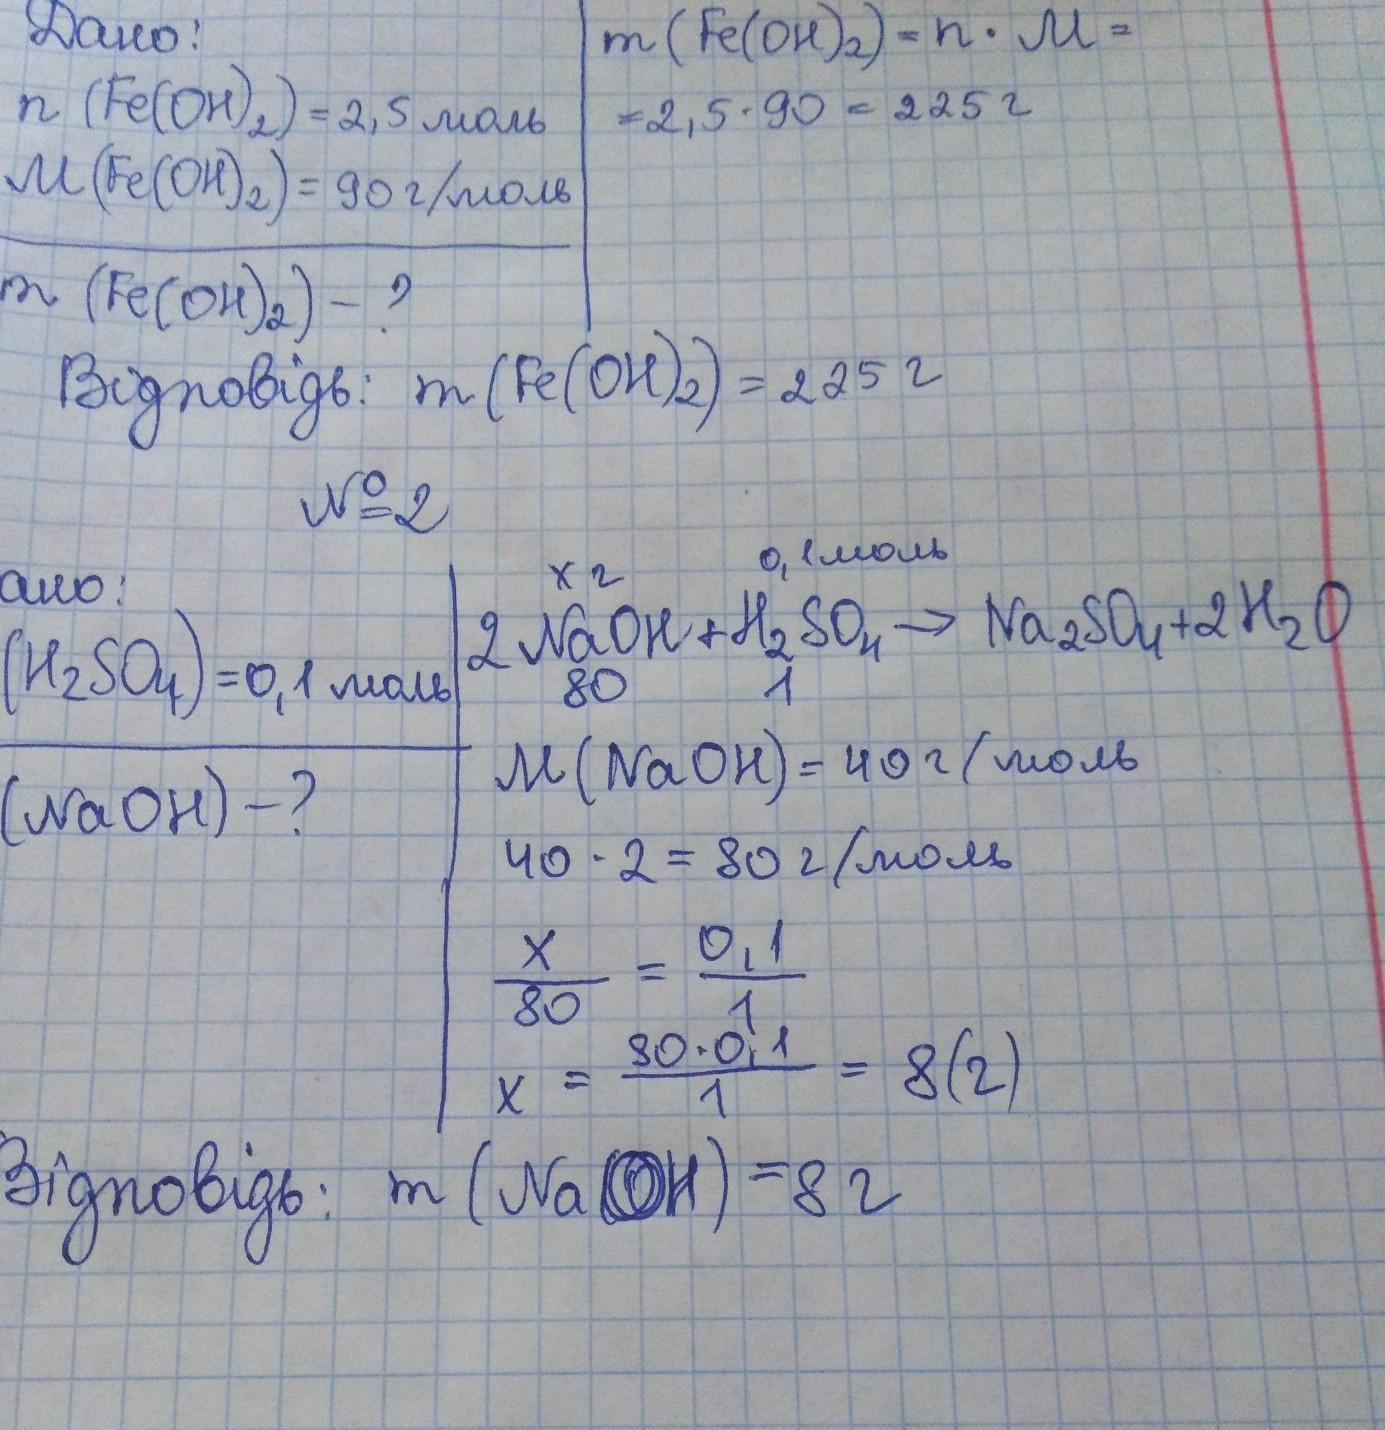 Дано:
n (Fe(OH)₂) = 2,5 моль
M (Fe(OH)₂) = 90 г/моль
m (Fe(OH)₂) – ?
m (Fe(OH)₂) = n · M =
= 2,5 · 90 = 225 г
Відповідь: m (Fe(OH)₂) = 225 г
№2
ано:
(H₂SO₄) = 0,1 моль
(NaOH) – ?
x г 0,1 моль
2 NaOH + H₂SO₄ → Na₂SO₄ + 2H₂O
80 1
M (NaOH) = 40 г/моль
40 · 2 = 80 г/моль
x/80 = 0,1/1
x = 80·0,1/1 = 8 (г)
Відповідь: m (NaOH) = 8 г